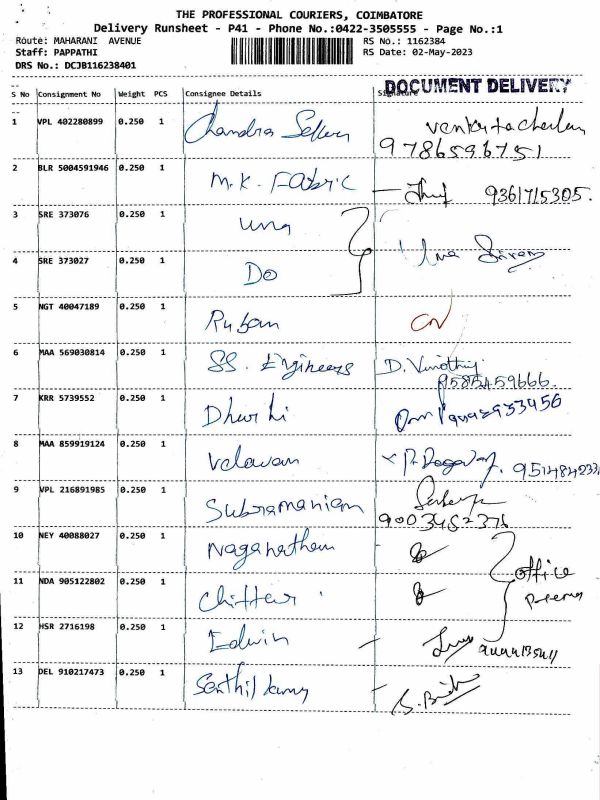 THE PROFESSIONAL COURIERS, COIMBATORE
Delivery Runsheet - P41 - Phone No.:0422-3505555 - Page No.:1
Route: MAHARANI AVENUE RS No.: 1162384
Staff: PAPPATHI RS Date: 02-May-2023
DRS No.: DCJB116238401
DOCUMENT DELIVERY
S No Consignment No Weight PCS Consignee Details Signature
1 VPL 402280899 0.250 1 Chandra
9786596751
2 BLR 5004591946 0.250 1 M.K. Fabric 9361715305.
3 SRE 373076 0.250 1 Uma
4 SRE 373027 0.250 1 Do
5 NGT 40047189 0.250 1 Ruban
6 MAA 569030814 0.250 1 SS. Engineers D.
9585459666.
7 KRR 5739552 0.250 1
8 MAA 859919124 0.250 1 Velavan
9 VPL 216891985 0.250 1 Subramaniam
9003452376
10 NEY 40088027 0.250 1
office
11 NDA 905122802 0.250 1
12 HSR 2716198 0.250 1 Edwin
13 DEL 910217473 0.250 1